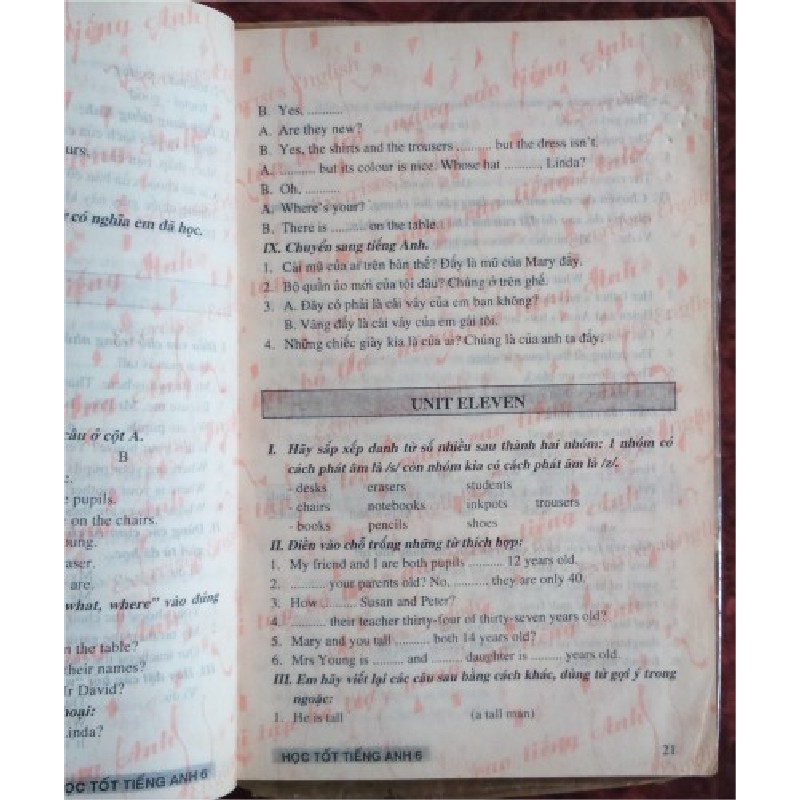 urs.
có nghĩa em đã học.
câu ở cột A.
B
pupils.
on the chairs.
oung.
aser.
are.
what, where" vào đúng
n the table?
their names?
r David?
hoại:
Linda?
ỌC TỐT TIẾNG ANH 6
B. Yes, ..........
A. Are they new?
B. Yes, the shirts and the trousers .......... but the dress isn't.
A. .......... but its colour is nice. Whose hat .........., Linda?
B. Oh, ..........
A. Where's your?
B. There is .......... on the table.
IX. Chuyển sang tiếng Anh.
1. Cái mũ của ai trên bàn thế? Đấy là mũ của Mary đấy.
2. Bộ quần áo mới của tôi đâu? Chúng ở trên ghế.
3. A. Đây có phải là cái váy của em bạn không?
B. Vâng đấy là cái váy của em gái tôi.
4. Những chiếc giày kia là của ai? Chúng là của anh ta đấy.
UNIT ELEVEN
I. Hãy sắp xếp danh từ số nhiều sau thành hai nhóm: 1 nhóm có
cách phát âm là /s/ còn nhóm kia có cách phát âm là /z/.
- desks erasers students
- chairs notebooks inkpots trousers
- books pencils shoes
II. Điền vào chỗ trống những từ thích hợp:
1. My friend and I are both pupils .......... 12 years old.
2. .......... your parents old? No, .......... they are only 40.
3. How .......... Susan and Peter?
4. .......... their teacher thirty-four of thirty-seven years old?
5. Mary and you tall .......... both 14 years old?
6. Mrs Young is .......... and .......... daughter is .......... years old.
III. Em hãy viết lại các câu sau bằng cách khác, dùng từ gợi ý trong
ngoặc:
1. He is tall (a tall man)
HỌC TỐT TIẾNG ANH 6
21